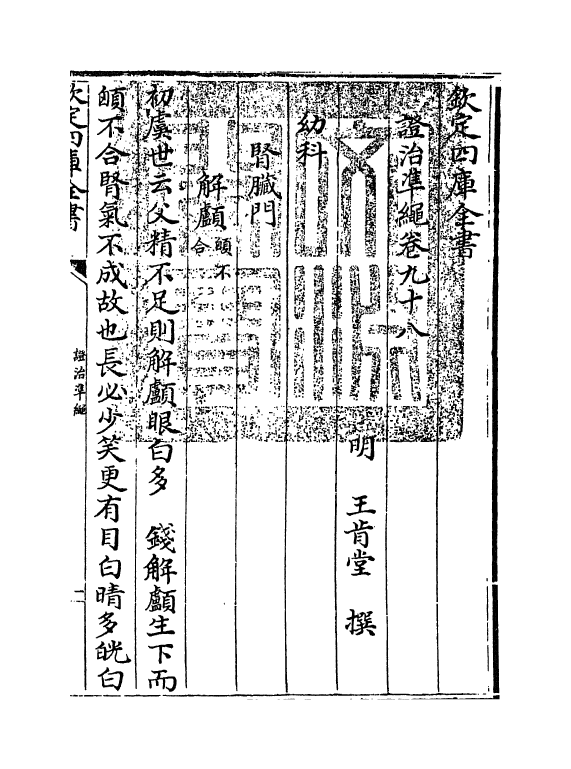 欽定四庫全書
證治準繩卷九十八
明 王肯堂 撰
幼科
腎臟門
解顱 顖不合
初虞世云父精不足則解顱眼白多 錢解顱生下而
顖不合腎氣不成故也長必少笑更有目白睛多㿠白
欽定四庫全書
證治準繩